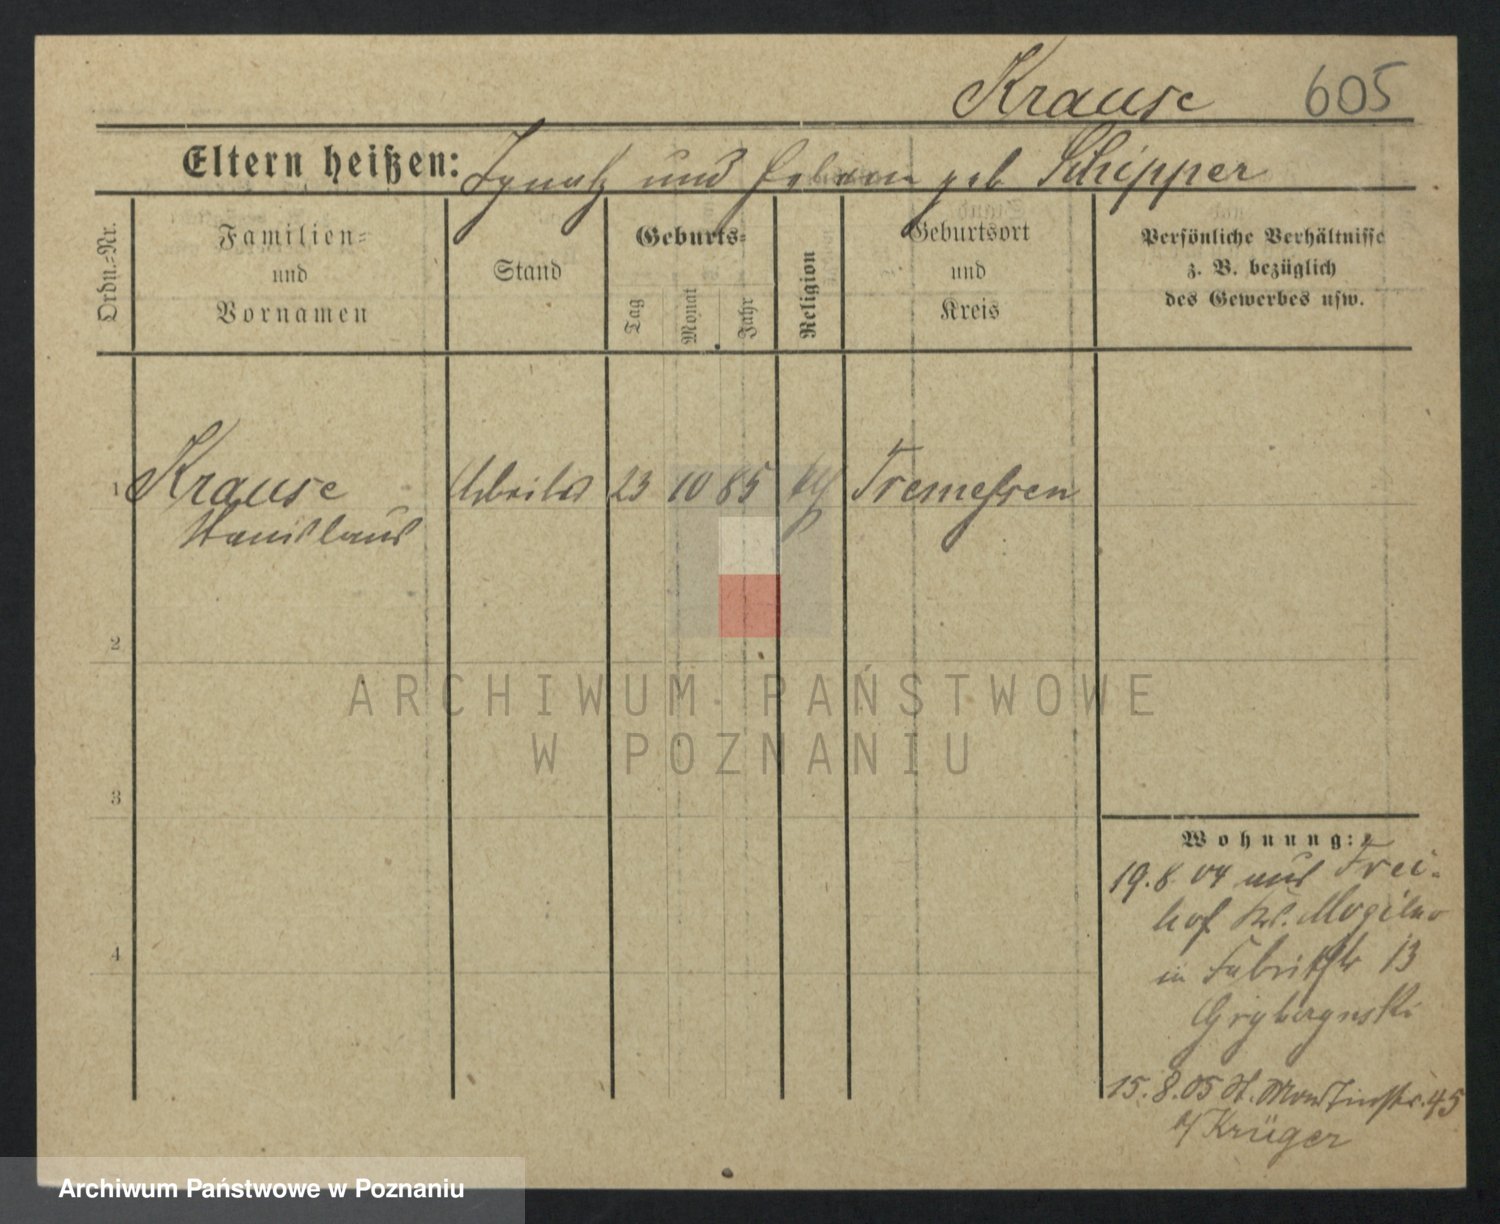 Krause 605
Eltern heißen: Ignatz und geb Schipper
Ordn.-Nr.
Familien-
und
Vornamen
Stand
Geburts-
Tag
Monat
Jahr
Religion
Geburtsort
und
Kreis
Persönliche Verhältnisse
z. B. bezüglich
des Gewerbes usw.
1 Krause Arbeiter 23 10 85 Tremessen
Stanislaus
2
3
4
Wohnung:
19.8.04 aus Frei-
hof Krs. Mogilno
in Fabrikstr 13
15.8.05 St. Martinstr. 45
b/ Krüger
ARCHIWUM PAŃSTWOWE
W POZNANIU
Archiwum Państwowe w Poznaniu